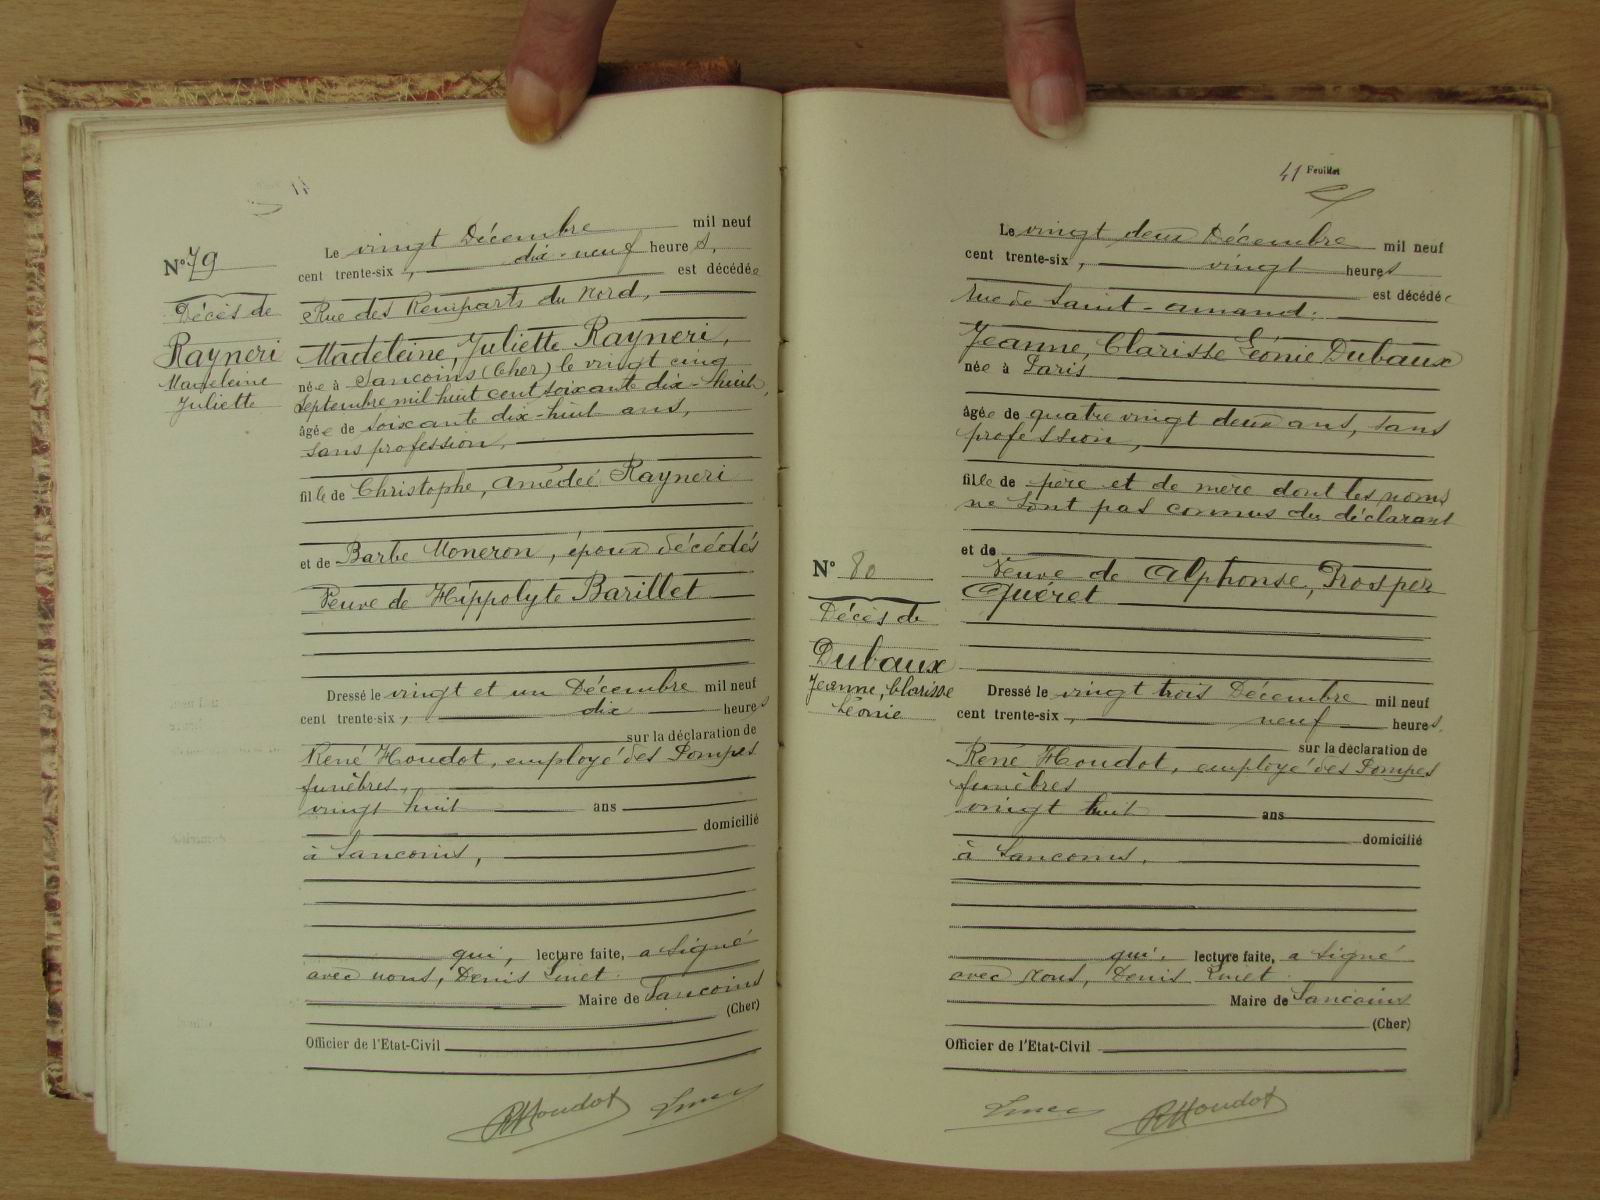 Le vingt Décembre mil neuf
cent trente-six, dix-neuf heures,
est décédée
Rue des Remparts du Nord,
Madeleine, Juliette Rayneri,
née à Sancoins (Cher) le vingt cinq
Septembre mil huit cent soixante dix-huit,
âgée de soixante dix-huit ans,
sans profession,
fille de Christophe, Amédée Rayneri
et de Barbe Moneron, époux décédés
Veuve de Hippolyte Barillet
Dressé le vingt et un Décembre mil neuf
cent trente-six, dix heures
sur la déclaration de
René Houdot, employé des Pompes
funèbres,
vingt huit ans
domicilié
à Sancoins,
qui, lecture faite, a signé
avec nous, Denis
Maire de Sancoins
(Cher)
Officier de l'Etat-Civil
RHoudot
N° 79
Décès de
Rayneri
Madeleine
Juliette
41 Feuillet
Le vingt deux Décembre mil neuf
cent trente-six, vingt heures
est décédée
rue de Saint-Amand.
Jeanne, Clarisse Léonie Dubaux
née à Paris
âgée de quatre vingt deux ans, sans
profession,
fille de père et de mère dont les noms
ne sont pas connus du déclarant
et de
Veuve de Alphonse, Prosper
Quéret
Dressé le vingt trois Décembre mil neuf
cent trente-six, neuf heures
sur la déclaration de
René Houdot, employé des Pompes
funèbres
vingt huit ans
domicilié
à Sancoins,
qui, lecture faite, a signé
avec Nous, Denis
Maire de Sancoins
(Cher)
Officier de l'Etat-Civil
RHoudot
N° 80
Décès de
Dubaux
Jeanne, Clarisse
Léonie